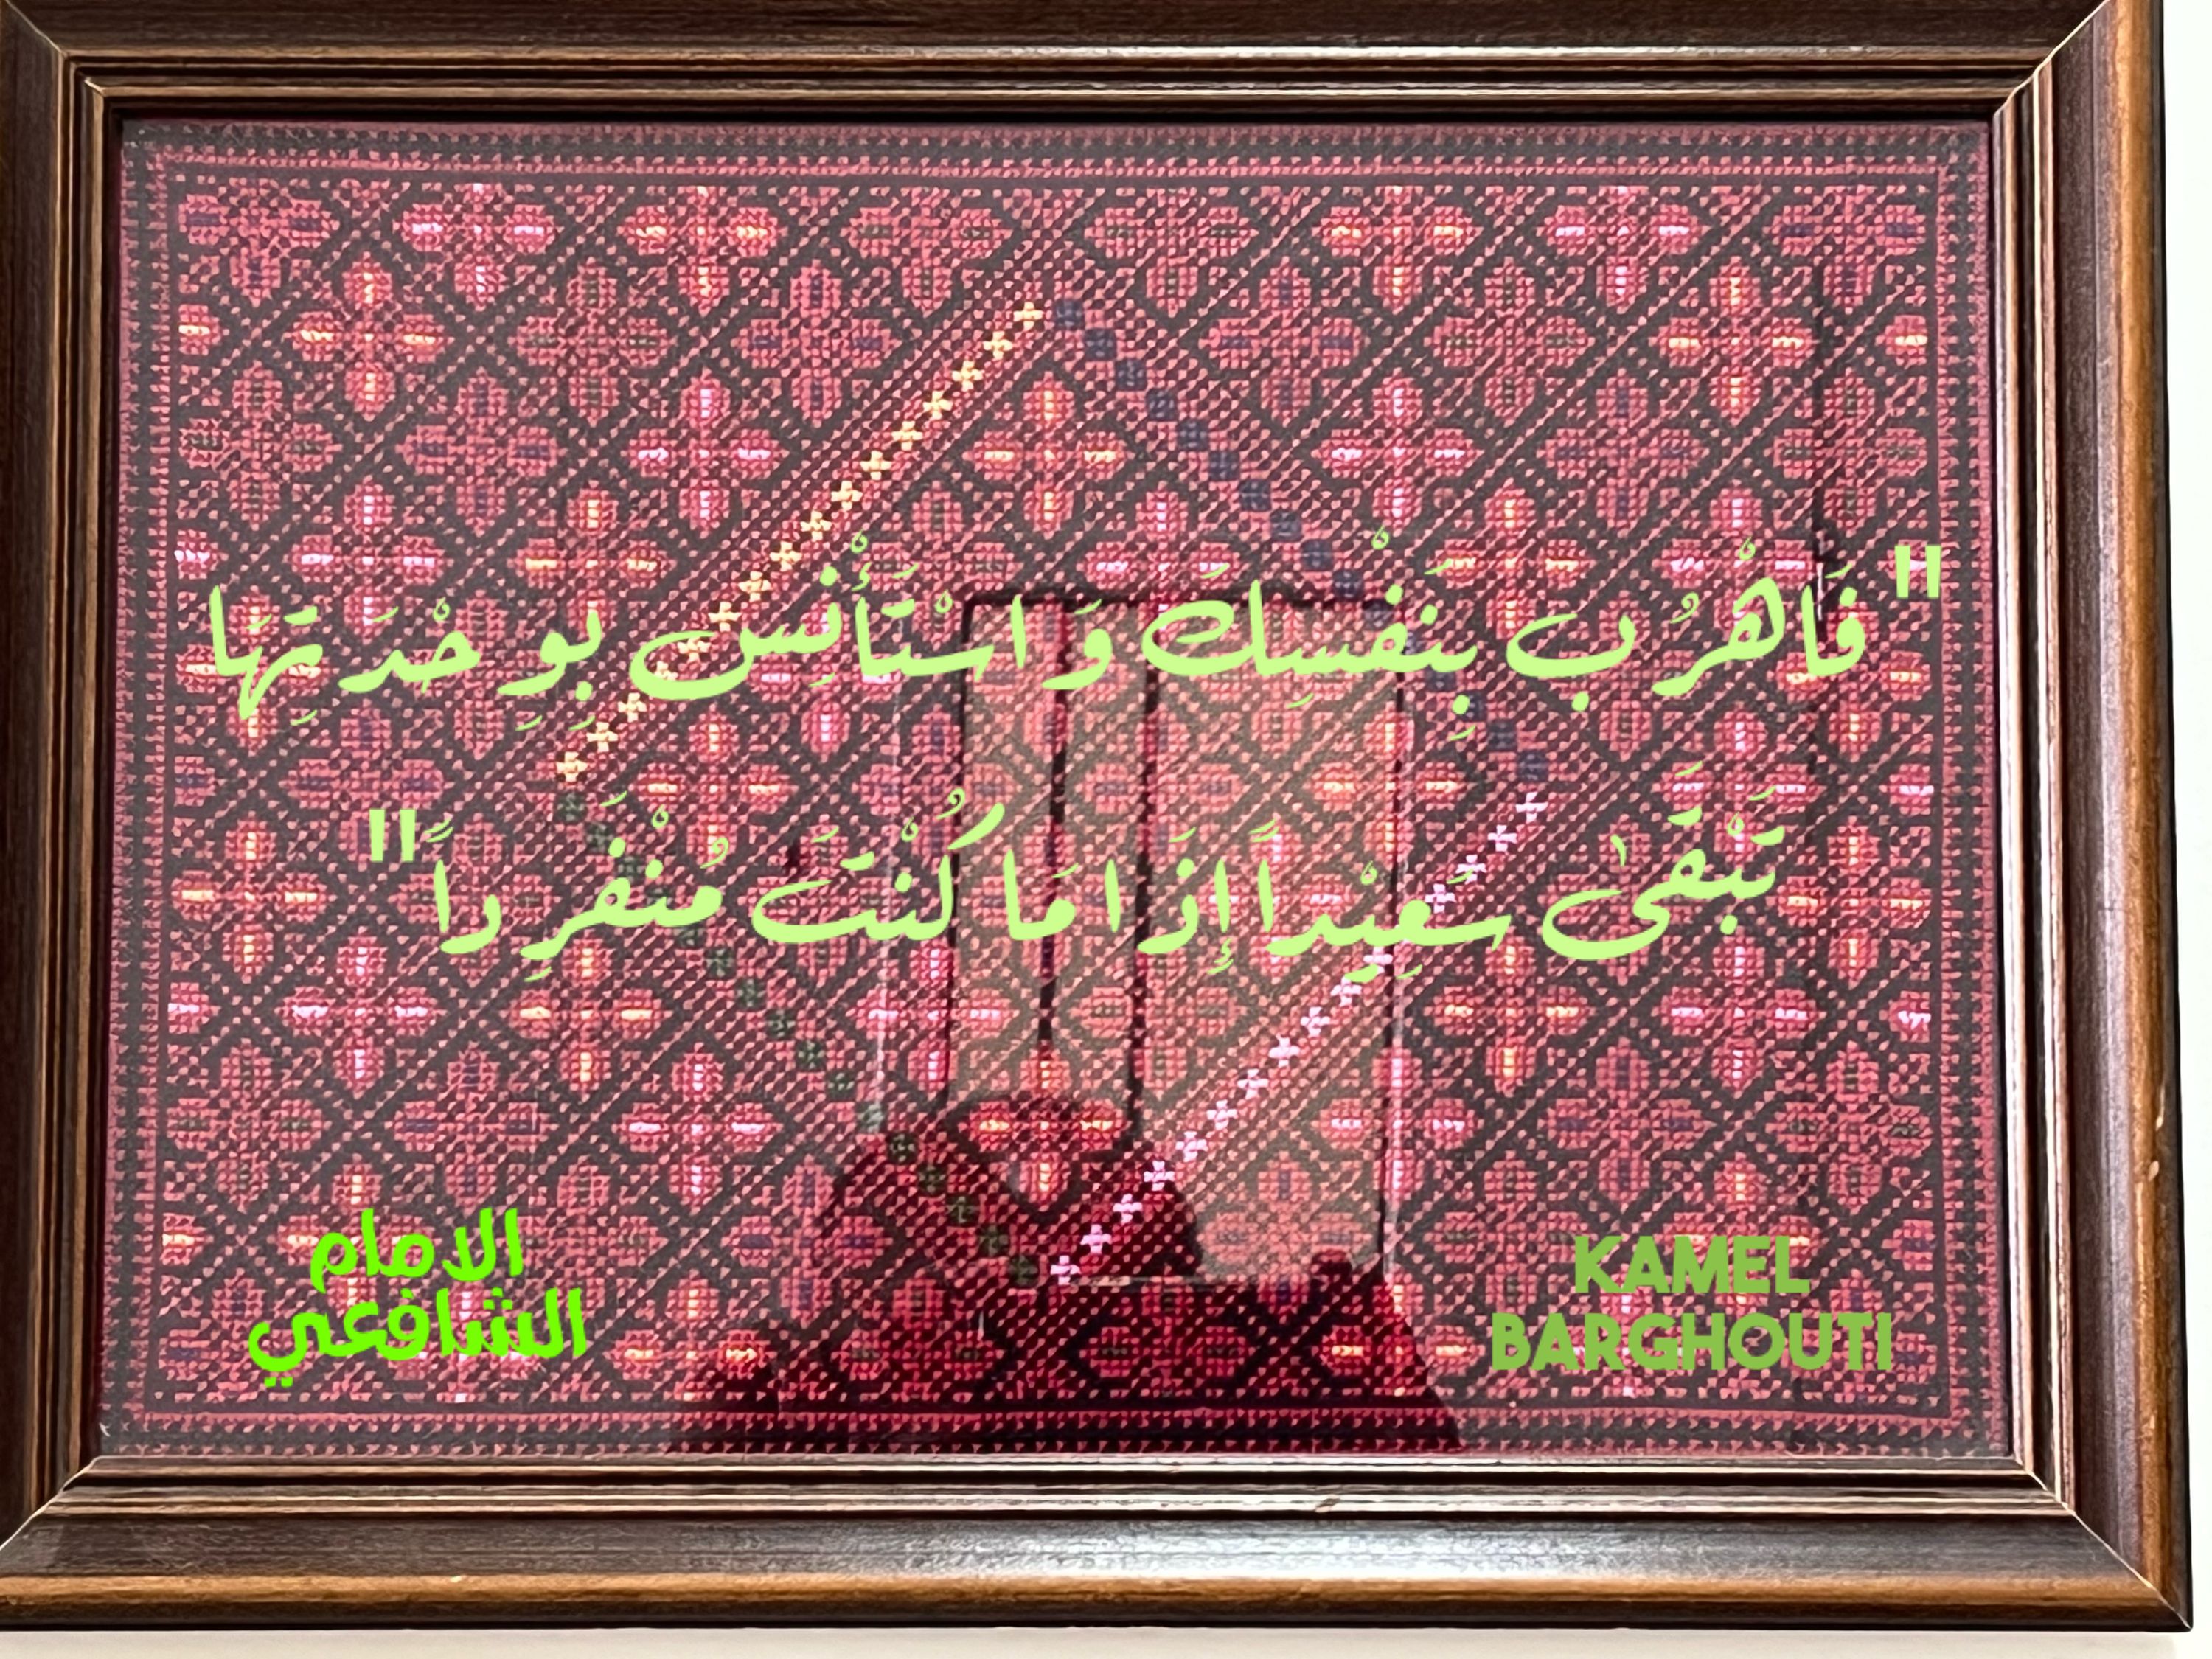 "فَاْهْرُب بِنَفْسِكَ وَ اسْتَأْنِس بِوِحْدَتِهَا
تَبْقَىٰ سَعِيْداً إِذَا مَا كُنْتَ مُنْفَرِداً"
الامام
الشافعي
KAMEL
BARGHOUTI